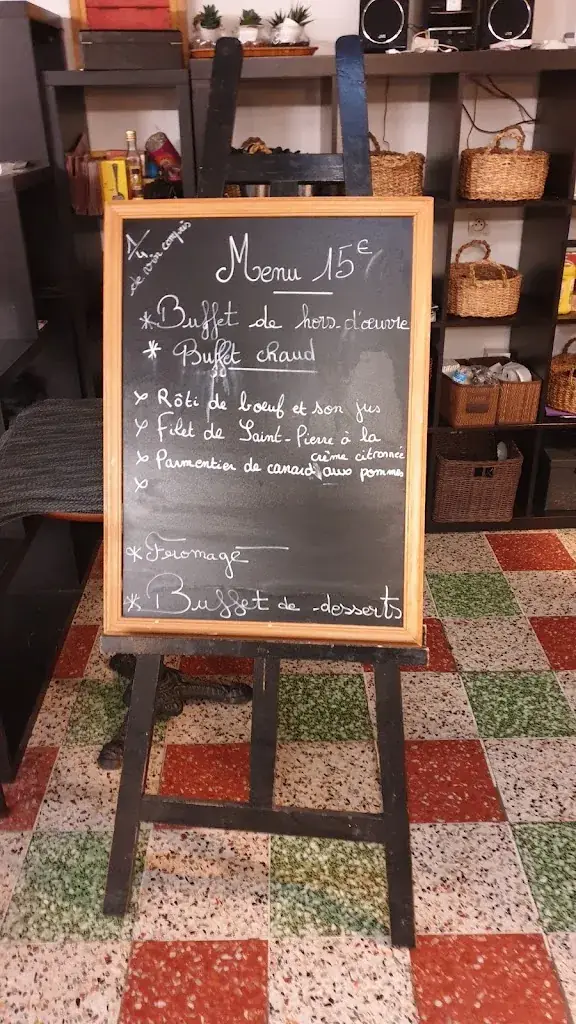 1/4
de vin compris
Menu 15€
* Buffet de hors-d'œuvre
* Buffet chaud
x Rôti de boeuf et son jus
x Filet de Saint-Pierre à la
crème citronnée
x Parmentier de canard aux pommes
x
* Fromage
* Buffet de desserts
JVC